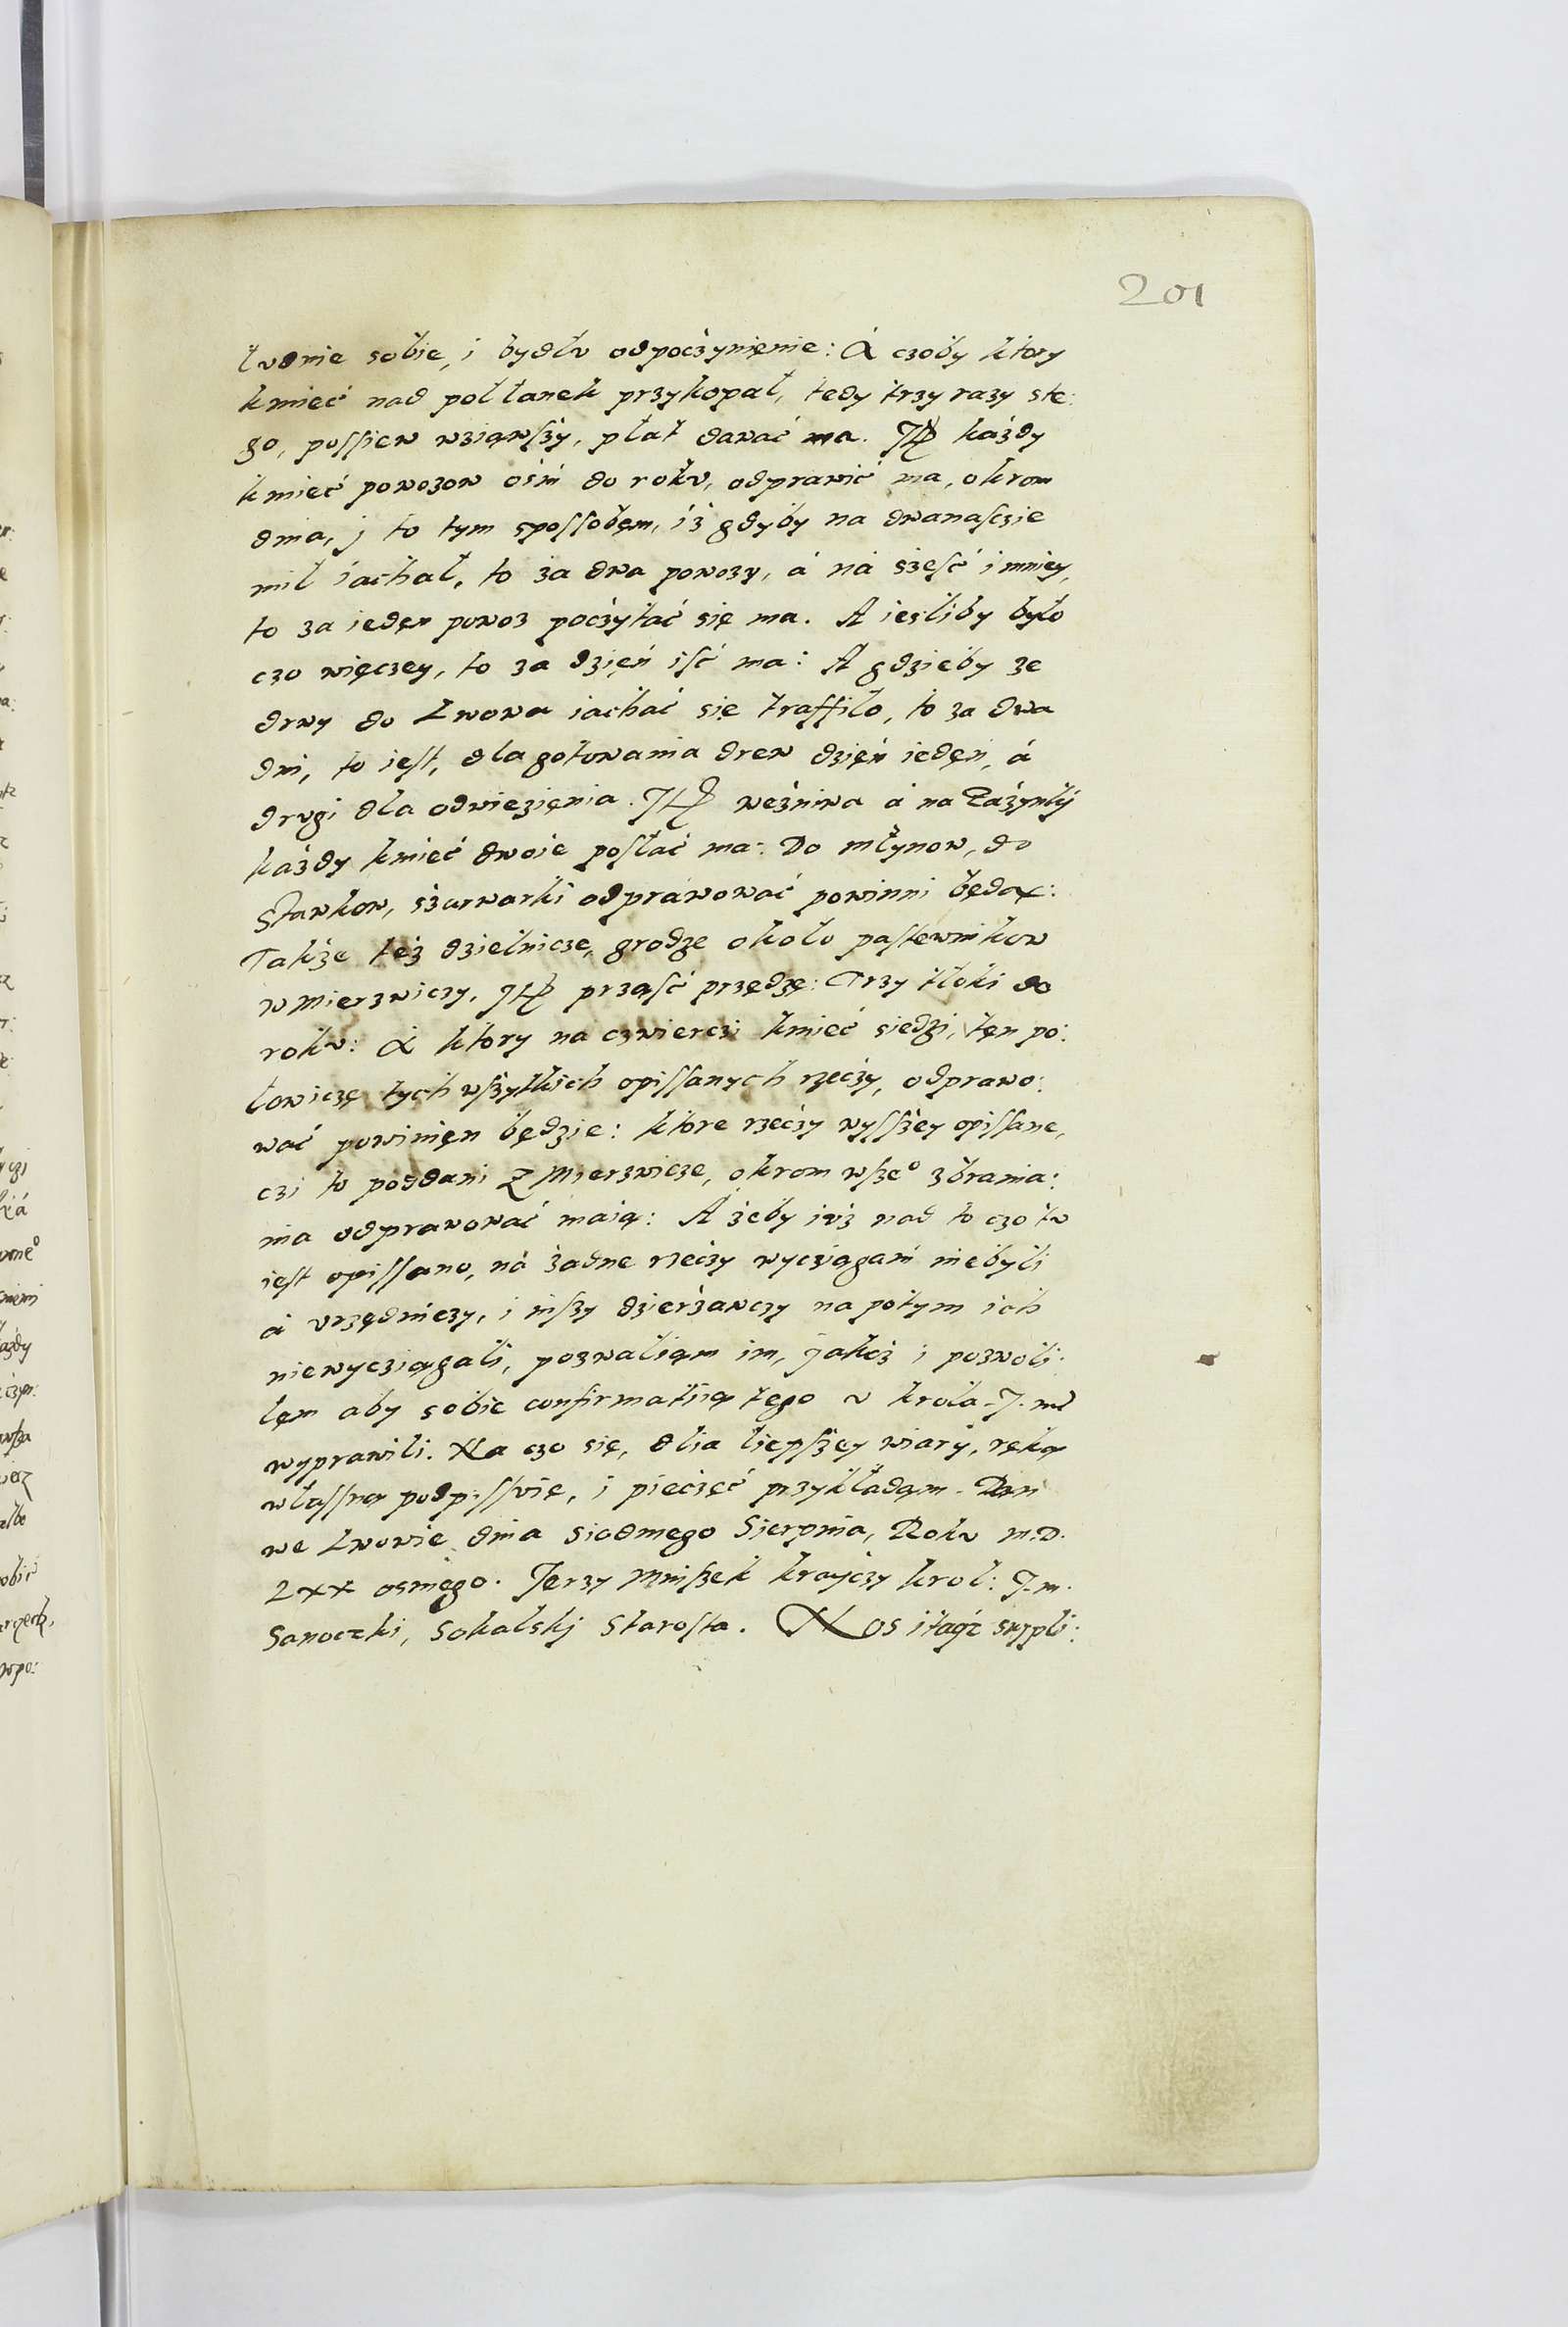 201
łudnie sobie, i bydłu odpoczynięnie: A czoby ktory
kmieć nad połłanek przykopał, tedy trzy razy ste:
go, possiew wziąwszy, płat dawać ma. Itē każdy
kmieć powozow ośm do roku, odprawić ma, okrom
dnia, j to tym spossobęm, iż gdyby na dwanasczie
mil iachał, to za dwa powozy, á ná sześć i mniey,
to za iedęn powoz poczytáć się ma. A iesliby było
czo więczey, to za dzięń iść ma: A gdzieby ze
drwy do Lwowa iacháć się traffiło, to za dwa
dni, to iest, dla gotowania drew dzięń iedęn, á
drugi dla odwiezięnia. Itē weżniwa á na Zażynki
każdy kmieć dwoie posłáć ma: Do młynow, do
Stawkow, szarwarki odpráwowáć powinni będą:
Także też dzielnicze, grodze około pastewnikow
w Mierzwiczy, Itē prząść przędzę: Trzy tłoki do
roku: A ktory na czwierczi kmieć siedzi, tęn po:
łowiczę tych wszytkich opissanych rzeczy, odprawo:
wać powinięn będzie: ktore rzeczy wysszey opissane,
czi to poddani z Mierzwicze, okrom wsze° zbrania:
nia odprawować maią: A żeby iuż nad to czo tu
iest opissano, ná żadne rzeczy wycziągani niebyli
á urzędniczy, i inszy dzierżawczy na potym ich
niewycziągali, pozwaliąm im, jakoż i pozwoli:
lęm aby sobie confirmatiią tego u krola J. mci
wyprawili. Na czo się, dlia liepszey wiary, ręką
własną podpissuię, i pieczęć przykładąm. Dan
we Lwowie dnia siodmego Sierpnia, Roku M.D.
Lxx osmęgo. Jerzy Mniszek krayczy krol: J.m.
Sanoczki, Sokalskj Starosta. Nos itaq̃ suppli: